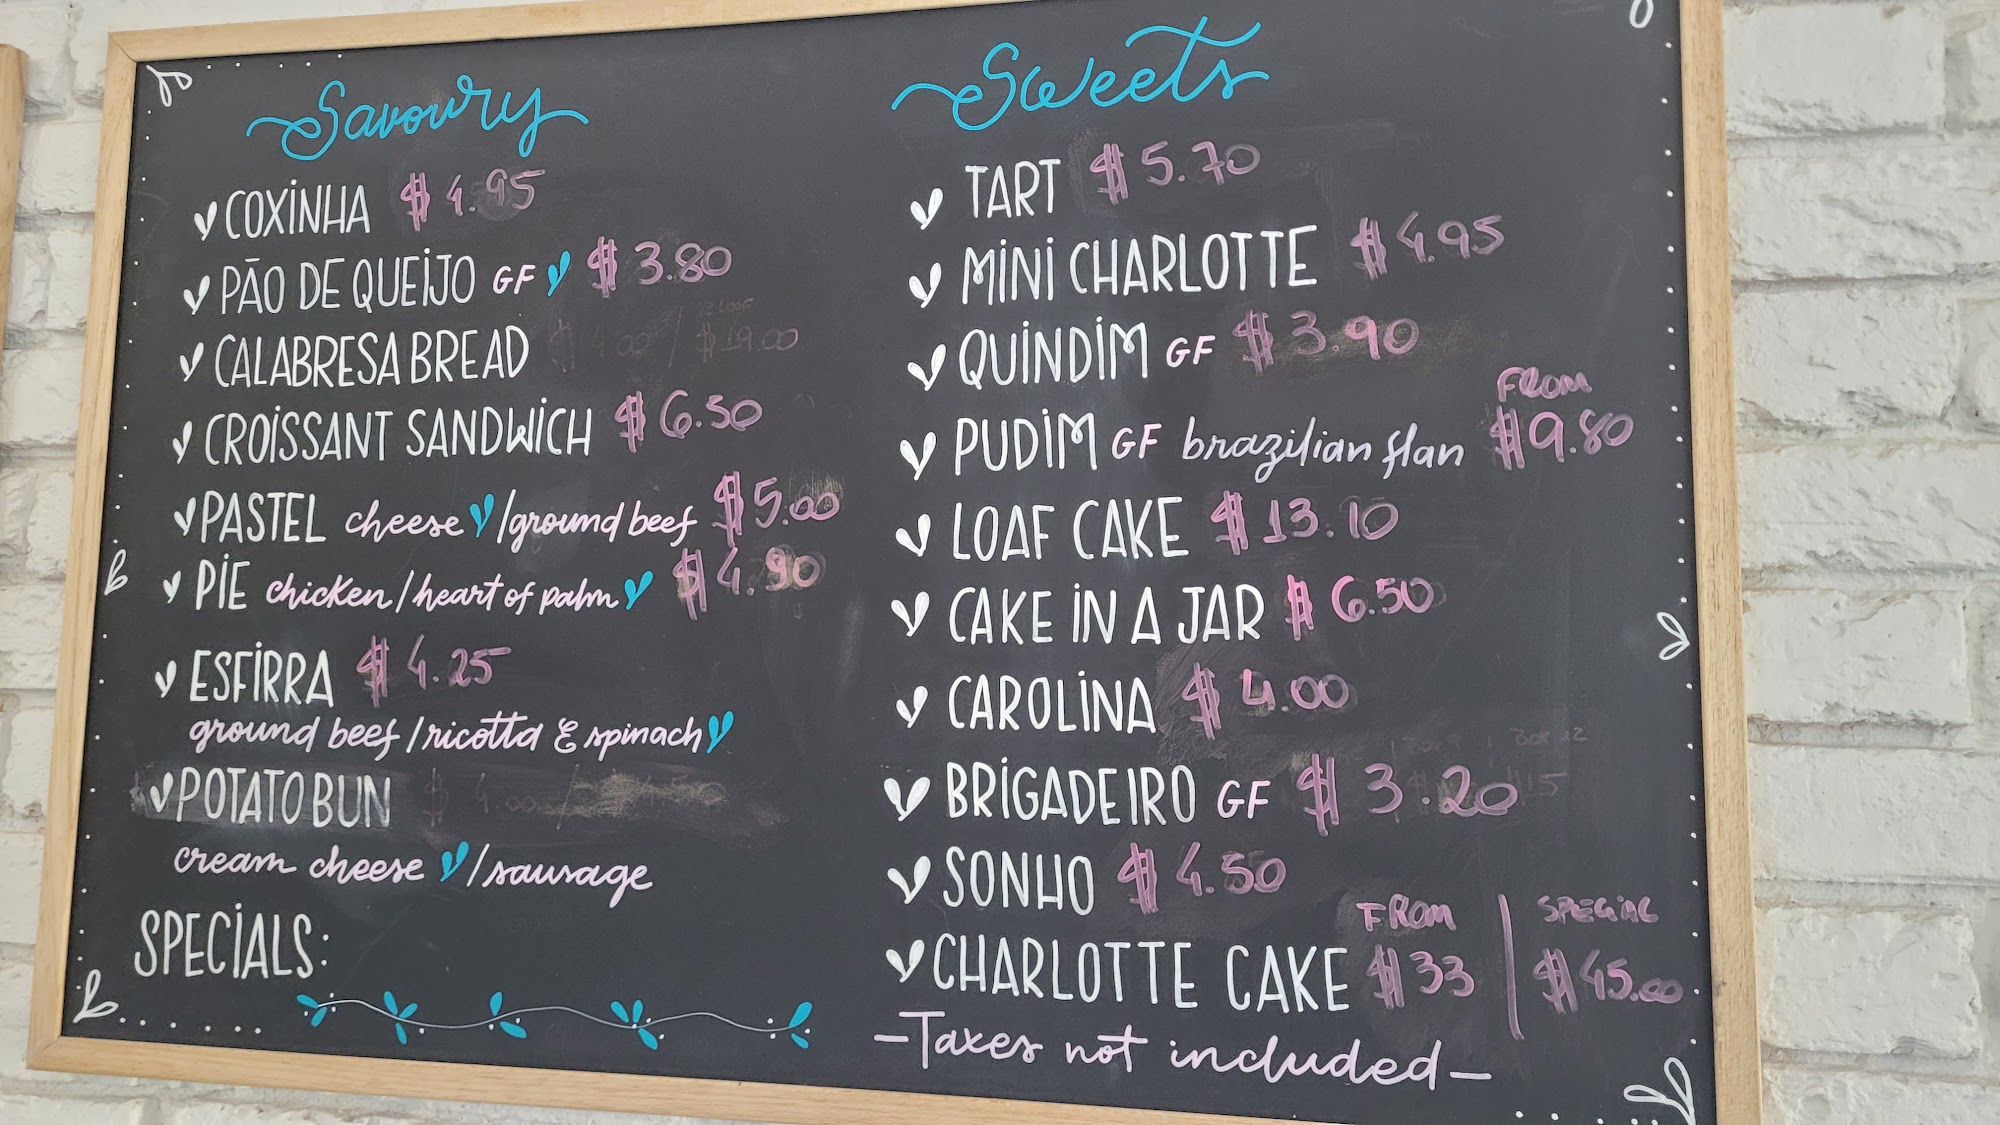 Savoury
COXINHA $4.95
PÃO DE QUEIJO GF $3.80
CALABRESA BREAD
CROISSANT SANDWICH $6.50
PASTEL cheese/ground beef $5.00
PIE chicken/heart of palm $4.90
ESFIRRA $4.25
ground beef/ricotta & spinach
POTATO BUN
cream cheese/sausage
SPECIALS:
Sweets
TART $5.70
MINI CHARLOTTE $4.95
QUINDIM GF $3.90
FROM
PUDIM GF brazilian flan $9.80
LOAF CAKE $13.10
CAKE IN A JAR $6.50
CAROLINA $4.00
BRIGADEIRO GF $3.20
SONHO $4.50
FROM | SPECIAL
CHARLOTTE CAKE $33 | $45.00
-Taxes not included-